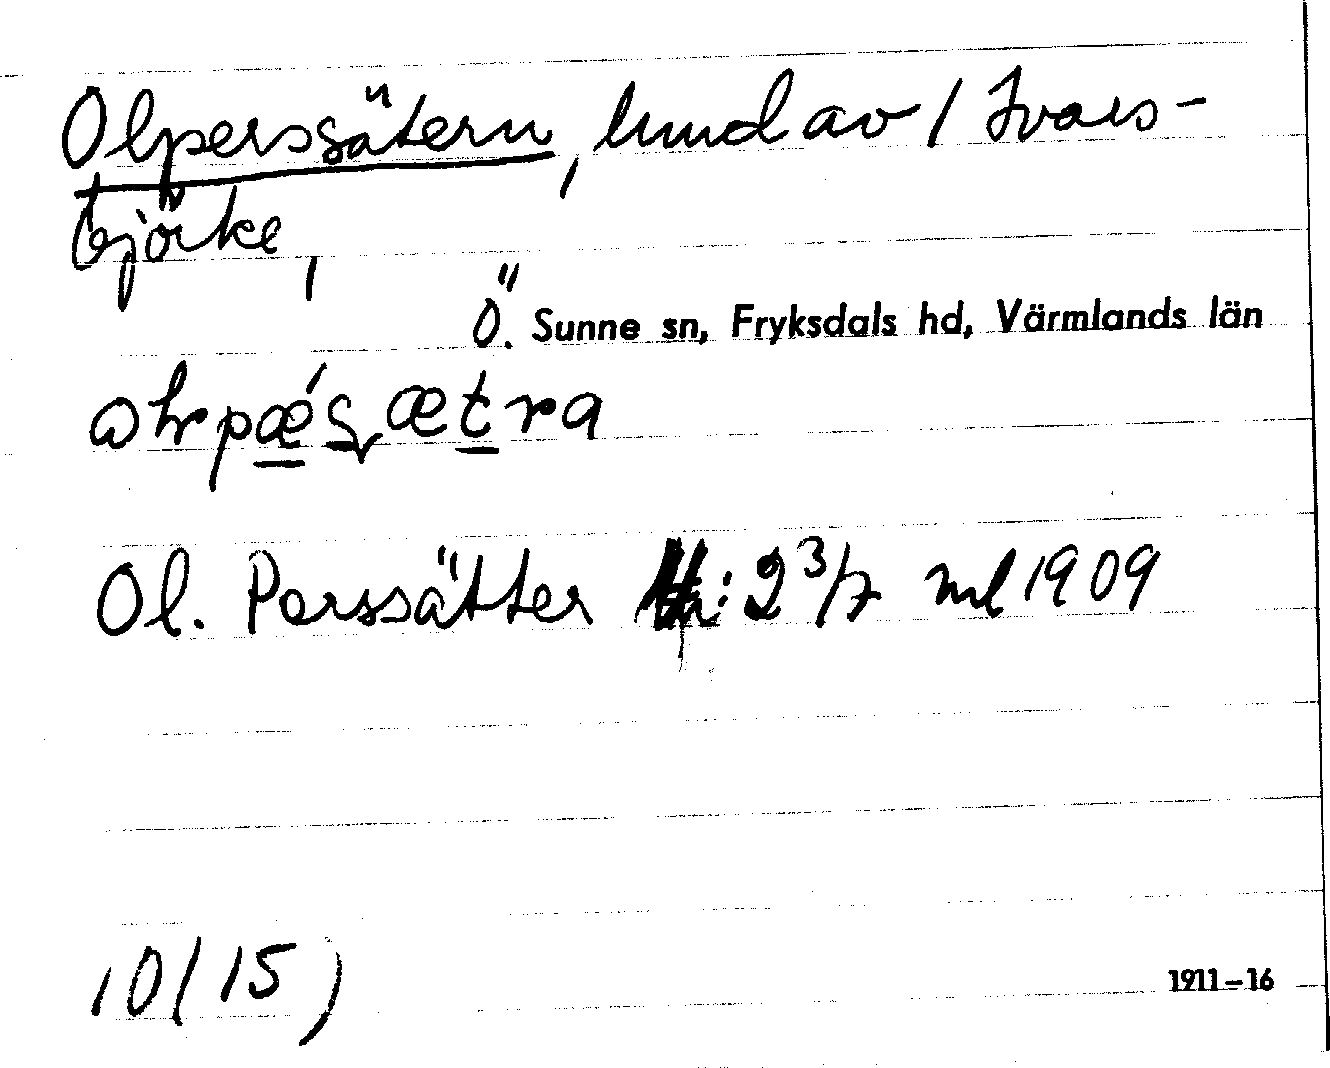 Olperssätern, lund av / Ivars-
björke,
Ö. Sunne sn, Fryksdals hd, Värmlands län
Ol. Perssätter 2 3/7 ml 1909
10 (15)
1911–16